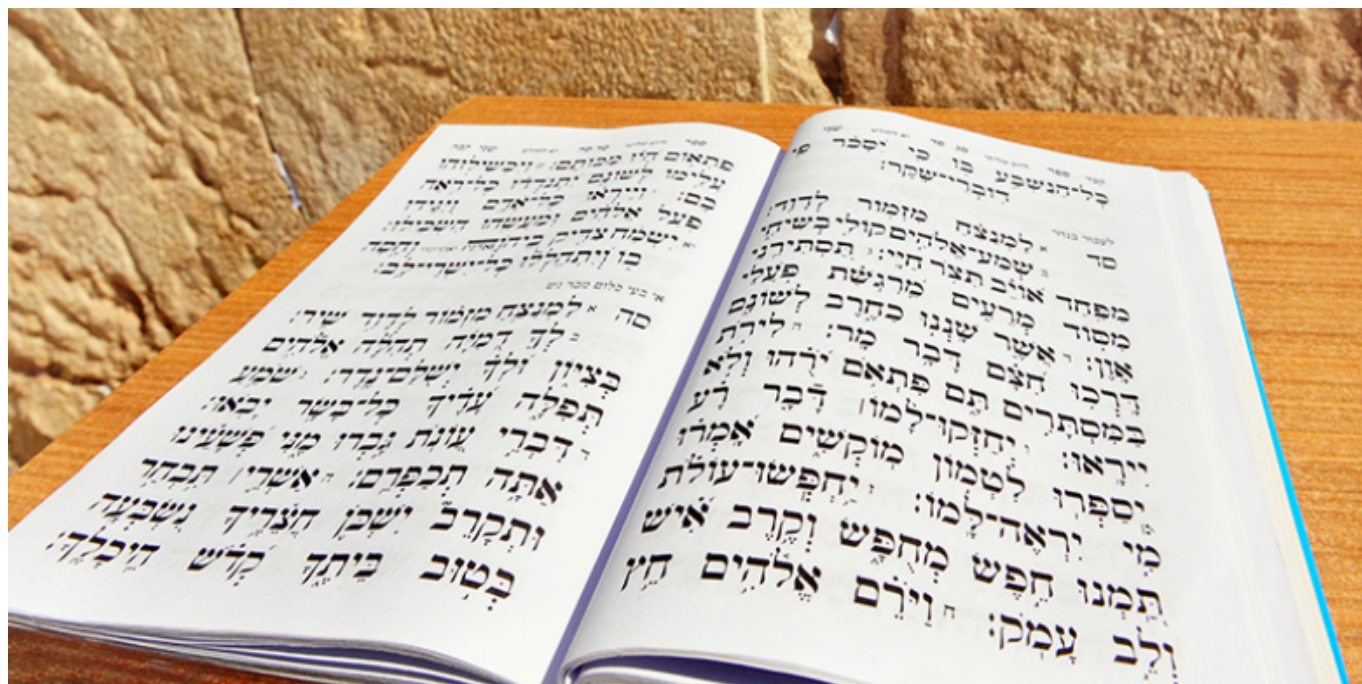 כָּל־הַנִּשְׁבָּע בּוֹ כִּי יִסָּכֵר פִּי
דוֹבְרֵי־שָׁקֶר:
לַמְנַצֵּחַ מִזְמוֹר לְדָוִד:
סד שְׁמַע־אֱלֹהִים קוֹלִי בְשִׂיחִי
מִפַּחַד אוֹיֵב תִּצֹּר חַיָּי: תַּסְתִּירֵנִי
מִסּוֹד מְרֵעִים מֵרִגְשַׁת פֹּעֲלֵי
אָוֶן: ד אֲשֶׁר שָׁנְנוּ כַחֶרֶב לְשׁוֹנָם
דָּרְכוּ חִצָּם דָּבָר מָר: ה לִירֹת
בַּמִּסְתָּרִים תָּם פִּתְאֹם יֹרֻהוּ וְלֹא
יִירָאוּ: ו יְחַזְּקוּ־לָמוֹ דָּבָר רָע
יְסַפְּרוּ לִטְמוֹן מוֹקְשִׁים אָמְרוּ
מִי יִרְאֶה־לָּמוֹ: ז יַחְפְּשׂוּ־עוֹלֹת
תַּמְנוּ חֵפֶשׂ מְחֻפָּשׂ וְקֶרֶב אִישׁ
וְלֵב עָמֹק: ח וַיֹּרֵם אֱלֹהִים חֵץ
פִּתְאוֹם הָיוּ מַכּוֹתָם: ט וַיַּכְשִׁילוּהוּ
עָלֵימוֹ לְשׁוֹנָם יִתְנֹדְדוּ כָּל־רֹאֵה
בָם: י וַיִּירְאוּ כָּל־אָדָם וַיַּגִּידוּ
פֹּעַל אֱלֹהִים וּמַעֲשֵׂהוּ הִשְׂכִּילוּ:
יא יִשְׂמַח צַדִּיק וְחָסָה
בוֹ וְיִתְהַלְלוּ כָּל־יִשְׁרֵי־לֵב:
סה א לַמְנַצֵּחַ מִזְמוֹר לְדָוִד שִׁיר:
ב לְךָ דֻמִיָּה תְהִלָּה אֱלֹהִים
בְּצִיּוֹן וּלְךָ יְשֻׁלַּם־נֶדֶר: ג שֹׁמֵעַ
תְּפִלָּה עָדֶיךָ כָּל־בָּשָׂר יָבֹאוּ:
ד דִּבְרֵי עֲוֹנֹת גָּבְרוּ מֶנִּי פְּשָׁעֵינוּ
אַתָּה תְכַפְּרֵם: ה אַשְׁרֵי תִּבְחַר
וּתְקָרֵב יִשְׁכֹּן חֲצֵרֶיךָ נִשְׂבְּעָה
בְּטוּב בֵּיתֶךָ קְדֹשׁ הֵיכָלֶךָ: